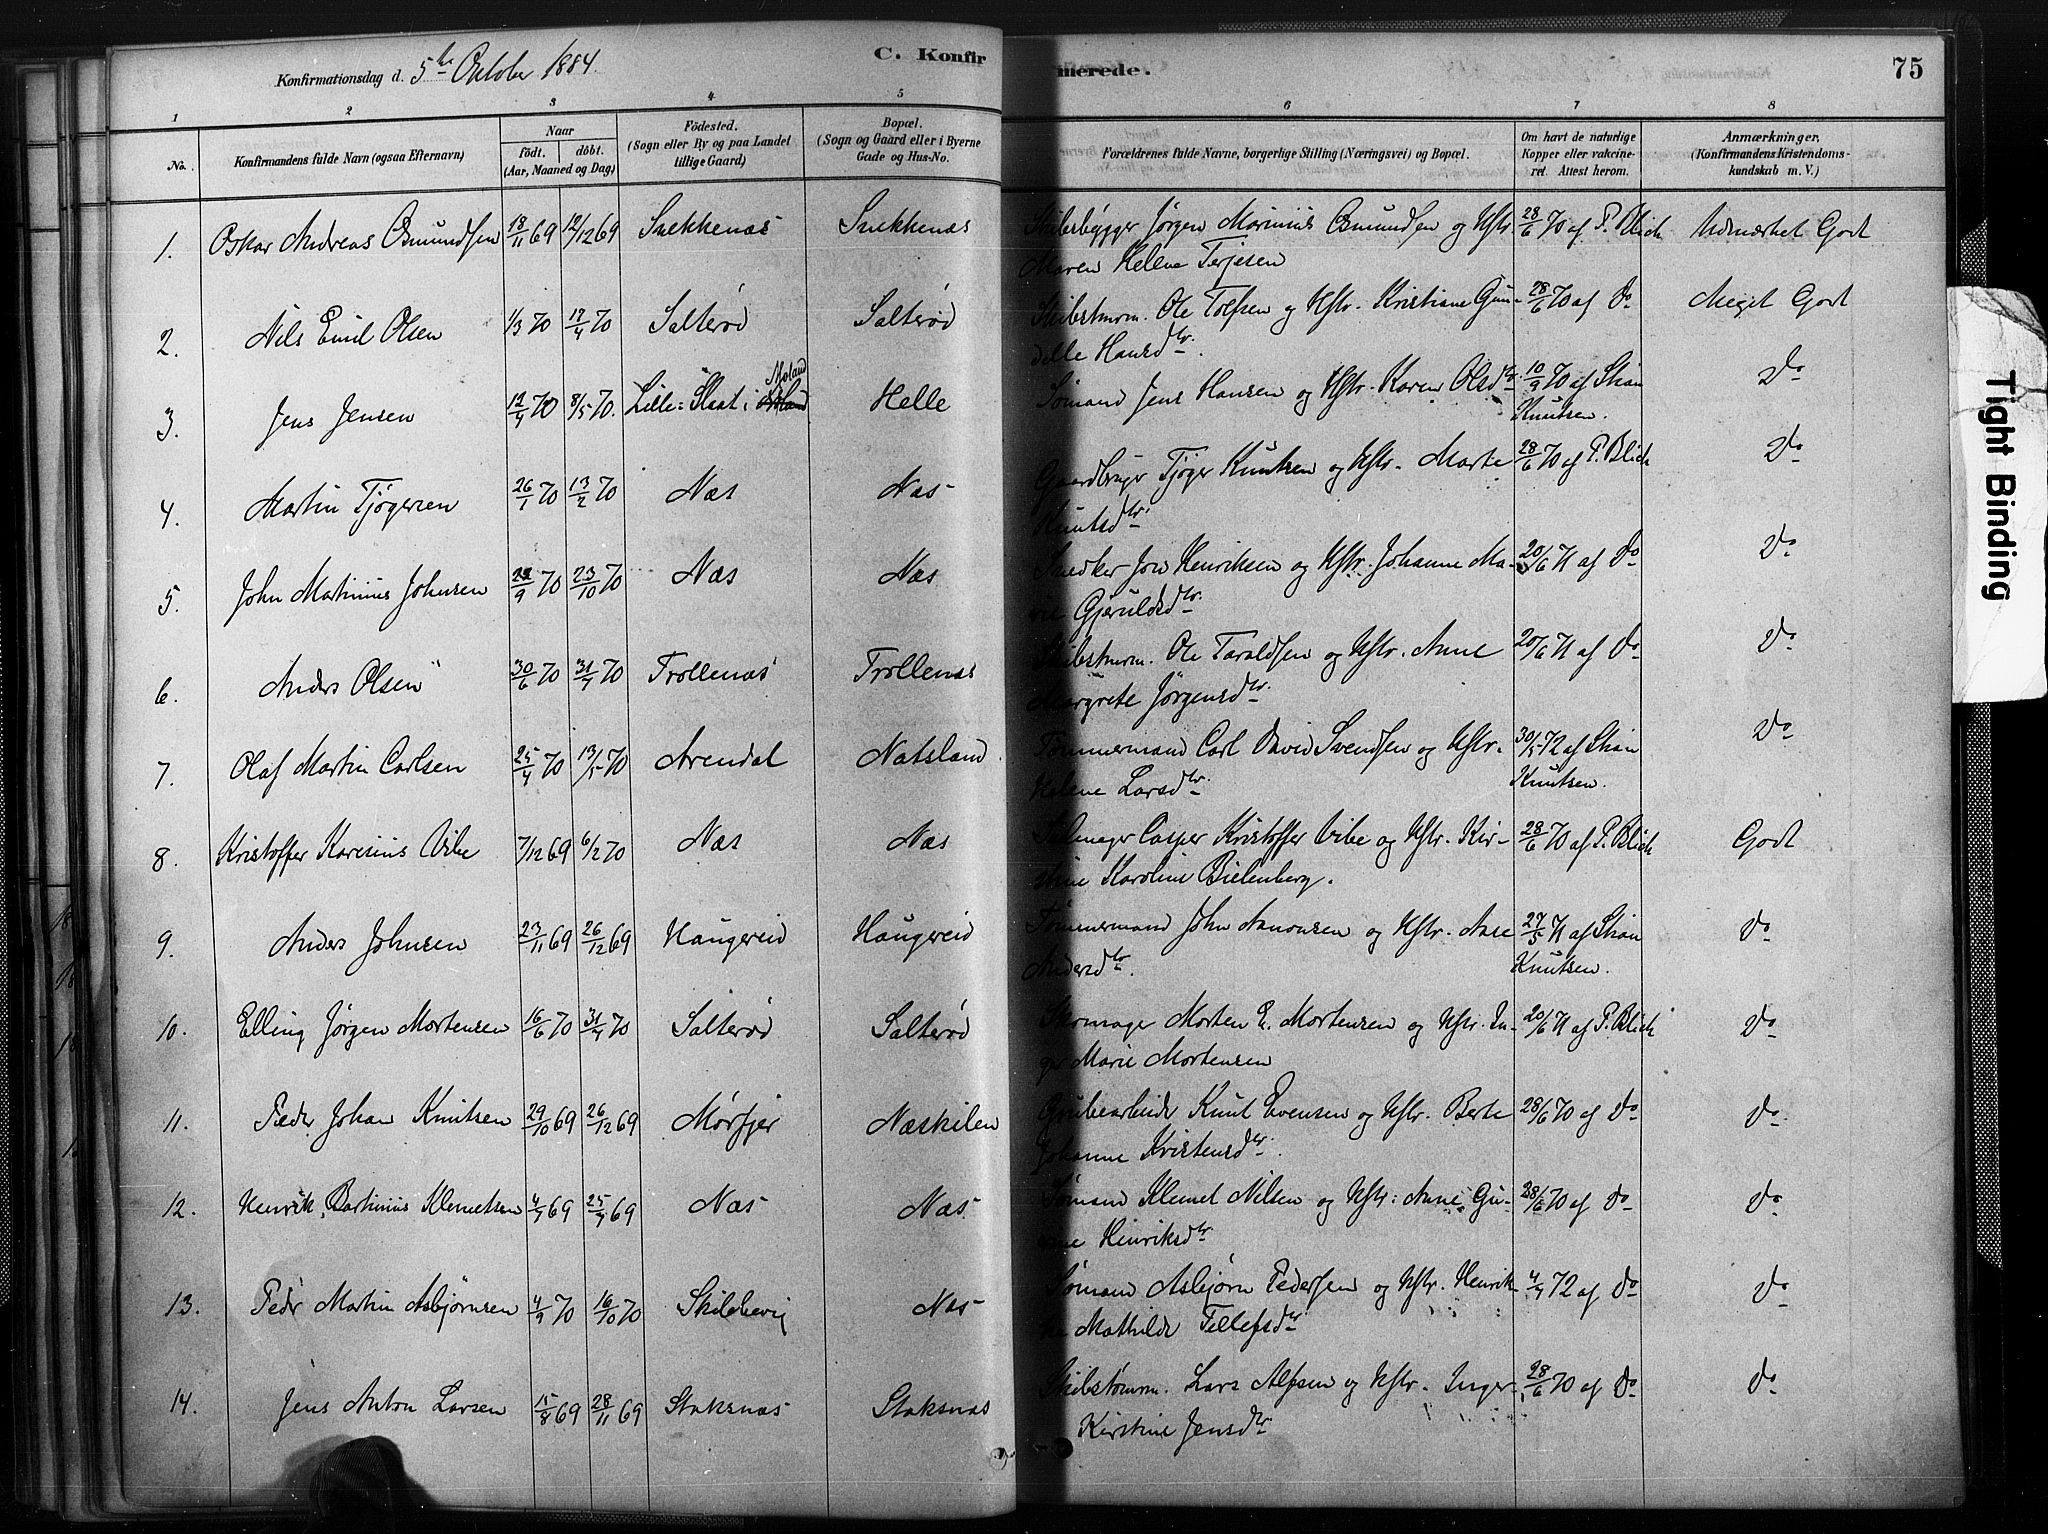 Konfirmationsdag d. 5te October 1884. C. Konfirmerede. 75
1 2 3 4 5 6 7 8
No. Konfirmandens fulde Navn (ogsaa Efternavn) Naar født. døbt. (Aar, Maaned og Dag) Födested. (Sogn eller By og paa Landet tillige Gaard) Bopæl. (Sogn og Gaard eller i Byerne Gade og Hus-No. Forældrenes fulde Navne, borgerlige Stilling (Næringsvei) og Bopæl. Om havt de naturlige Kopper eller vakcineret. Attest herom. Anmærkninger, (Konfirmandens Kristendomskundskab m. V.)
1. Oskar Andreas Osmundsen 18/11 69 12/12 69 Snekkenæs Snekkenæs Skibsbygger Jørgen Marinius Osmundsen og Hstr. 28/6 70 af P. Blich Udmærket Godt
Maren Helene Terjesen
2. Nils Emil Olsen 1/3 70 17/4 70 Salterød Salterød Skibstmrm. Ole Tolfsen og Hstr. Kristiane Gun- 28/6 70 af Do Meget Godt
dille Hansdtr.
3. Jens Jensen 12/4 70 8/5 70. Lille-Slaat i Moland Helle Sømand Jens Hansen og Hstr. Karen Olsdtr. 10/9 70 af Stian Do
Knutsen.
4. Martin Tjøgersen 26/1 70 13/2 70 Næs Næs Gaardbruger Tjøger Knutsen og Hstr. Marte 28/6 70 af P. Blich Do
Knutsdtr.
5. John Martinius Johnsen 70 23/10 70 Næs Næs Snedker Jon Henriksen og Hstr. Johanne Ma- 20/6 71 af Do Do
rie Gjeruldsdtr.
6. Anders Olsen 30/6 70 31/7 70 Trollenæs Trollenæs Skibstmrm. Ole Taraldsen og Hstr. Anne 20/6 71 af Do Do
Margrete Jørgensdtr.
7. Olaf Martin Carlsen 25/4 70 13/5 70 Arendal Natsland Tømmermand Carl David Svendsen og Hstr. 30/5 72 af Stian Do
Helene Larsdtr. Knutsen.
8. Kristoffer Karesius Vibe 7/12 69 6/2 70 Næs Næs Casper Kristoffer Vibe og Hstr. Kir- 28/6 70 af P. Blich Godt
stine Karoline Bielenberg.
9. Anders Johnsen 23/11 69 26/12 69 Haugereid Haugereid Tømmermand John Aanonsen og Hstr. Aase 27/5 71 af Stian Do
Andersdtr. Knutsen.
10. Elling Jørgen Mortensen 16/6 70 31/7 70 Salterød Salterød Skomager Morten E. Mortensen og Hstr. In- 20/6 71 af P. Blich Do
ger Marie Mortensen
11. Peder Johan Knutsen 29/10 69 26/12 69 Mørfjer Næskilen Grubearbeider Knut Evensen og Hstr. Berte 28/6 70 af Do Do
Johanne Kristensdtr.
12. Henrik Bertinius Klemetsen 4/7 69 25/7 69 Næs Næs Sømand Klemet Nilsen og Hstr. Anne Gu- 28/6 70 af Do Do
rine Henriksdtr.
13. Peder Martin Asbjørnsen 4/9 70 16/10 70 Skibbevig Næs Sømand Asbjørn Pedersen og Hstr. Henrik- 4/7 72 af Do Do
ke Mathilde Tellefsdtr.
14. Jens Anton Larsen 15/8 69 28/11 69 Staksnæs Staksnæs Skibstømrm. Lars Alfsen og Hstr. Inger 28/6 70 af Do Do
Kirstine Jensdtr.
Tight Binding